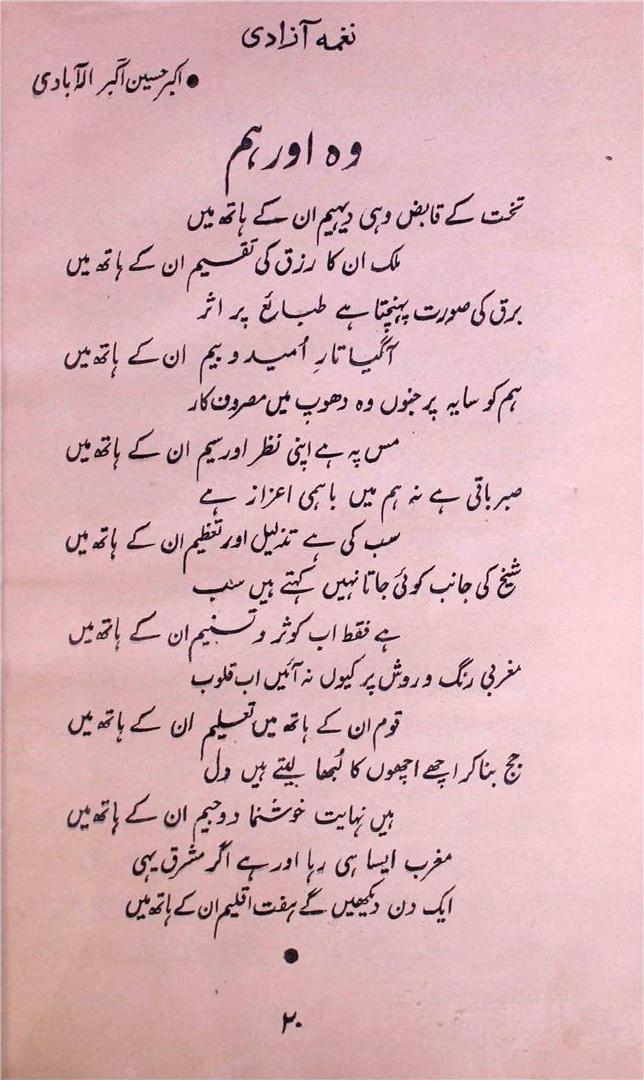 نغمہ آزادی
● اکبر حسین اکبر الہ آبادی
وہ اور ہم
تخت کے قابض وہی دیہیم ان کے ہاتھ میں
ملک ان کا رزق کی تقسیم ان کے ہاتھ میں
برق کی صورت پہنچتا ہے طبائع پر اثر
آگیا تارِ اُمید و بیم ان کے ہاتھ میں
ہم کو سایہ پر جنوں وہ دھوپ میں مصروف کار
مس پہ ہے اپنی نظر اور سیم ان کے ہاتھ میں
صبر باقی ہے نہ ہم میں باہمی اعزاز ہے
سب کی ہے تذلیل اور تعظیم ان کے ہاتھ میں
شیخ کی جانب کوئی جاتا نہیں کہتے ہیں سب
ہے فقط اب کوثر و تسنیم ان کے ہاتھ میں
مغربی رنگ و روش پر کیوں نہ آئیں اب قلوب
قوم ان کے ہاتھ میں تعلیم ان کے ہاتھ میں
جج بنا کر اچھے اچھوں کا لُبھا لیتے ہیں دل
ہیں نہایت خوشنما دو جیم ان کے ہاتھ میں
مغرب ایسا ہی رہا اور ہے اگر مشرق یہی
ایک دن دیکھیں گے ہفت اقلیم ان کے ہاتھ میں
●
۲۰